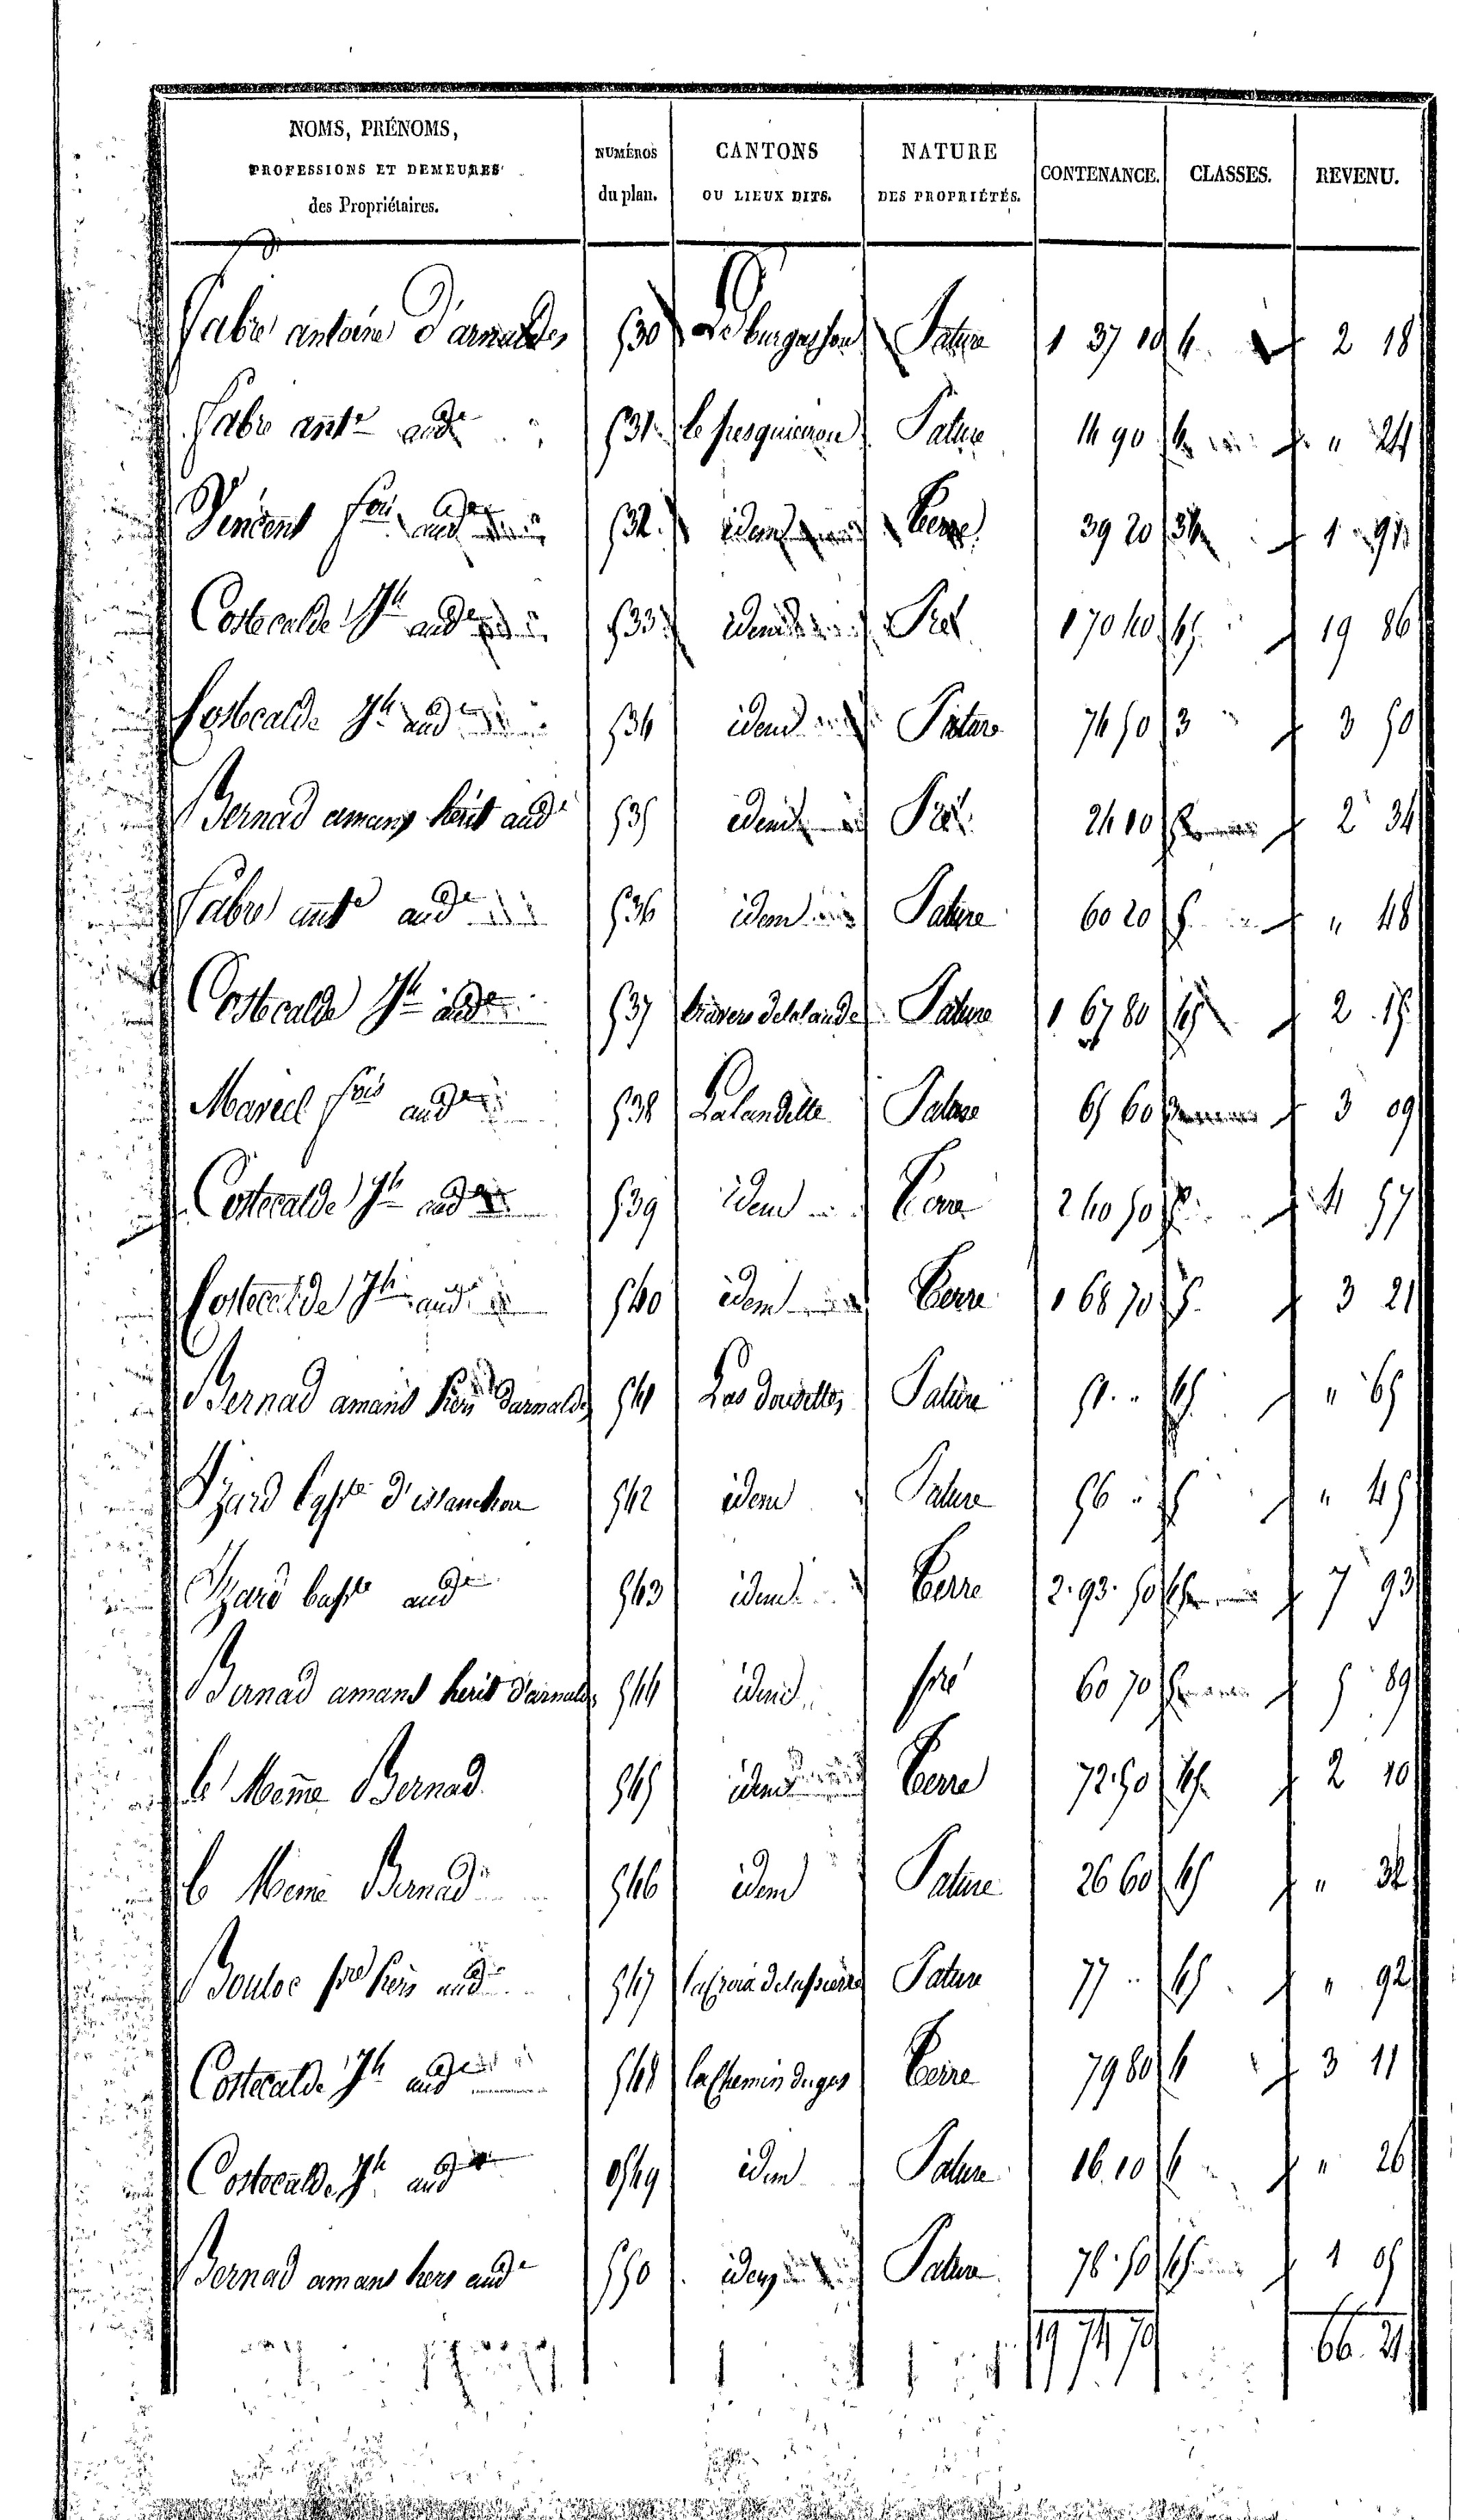 NOMS, PRÉNOMS, PROFESSIONS ET DEMEURES des Propriétaires. NUMÉROS du plan. CANTONS OU LIEUX DITS. NATURE DES PROPRIÉTÉS. CONTENANCE. CLASSES. REVENU.
Fabre antoine d'arnaldes 530 Pature 1 37 10 4 2 18
Fabre ante aude 531 Pature 14 90 4 " 24
Vincent fois aude 532 idem Terre 39 20 34 1 91
Costecalde Jh aude 533 idem Pré 1 70 40 45 19 86
Costecalde Jh aude 534 idem Pature 74 50 3 3 50
Bernad amans herit aude 535 idem Pré 24 10 5 2 34
Fabre ante aude 536 idem Pature 60 20 5 " 48
Costecalde Jh aude 537 travers delalande Pature 1 67 80 45 2 15
Marcel fois aude 538 Lalandette Pature 65 60 3 3 09
Costecalde Jh aude 539 idem Terre 2 40 50 5 4 57
Costecalde Jh aude 540 idem Terre 1 68 70 5 3 21
Bernad amans hers darnaldes 541 Las douzettes Pature 51 " 45 " 65
Izard bapte d' 542 idem Pature 56 " 5 " 45
Izard bapte aude 543 idem Terre 2 93 50 45 7 93
Bernad amans herit d'arnaldes 544 idem pré 60 70 5 5 89
le Même Bernad 545 idem Terre 72 50 45 2 10
le Même Bernad 546 idem Pature 26 60 45 " 32
Bouloc pre hers aude 547 la Croix delapierre Pature 77 " 45 " 92
Costecalde Jh aude 548 le Chemin dugas Terre 79 80 4 3 11
Costecalde Jh aude 549 idem Pature 16 10 4 " 26
Bernad amans hers aude 550 idem Pature 78 50 45 1 05
19 74 70 66. 21